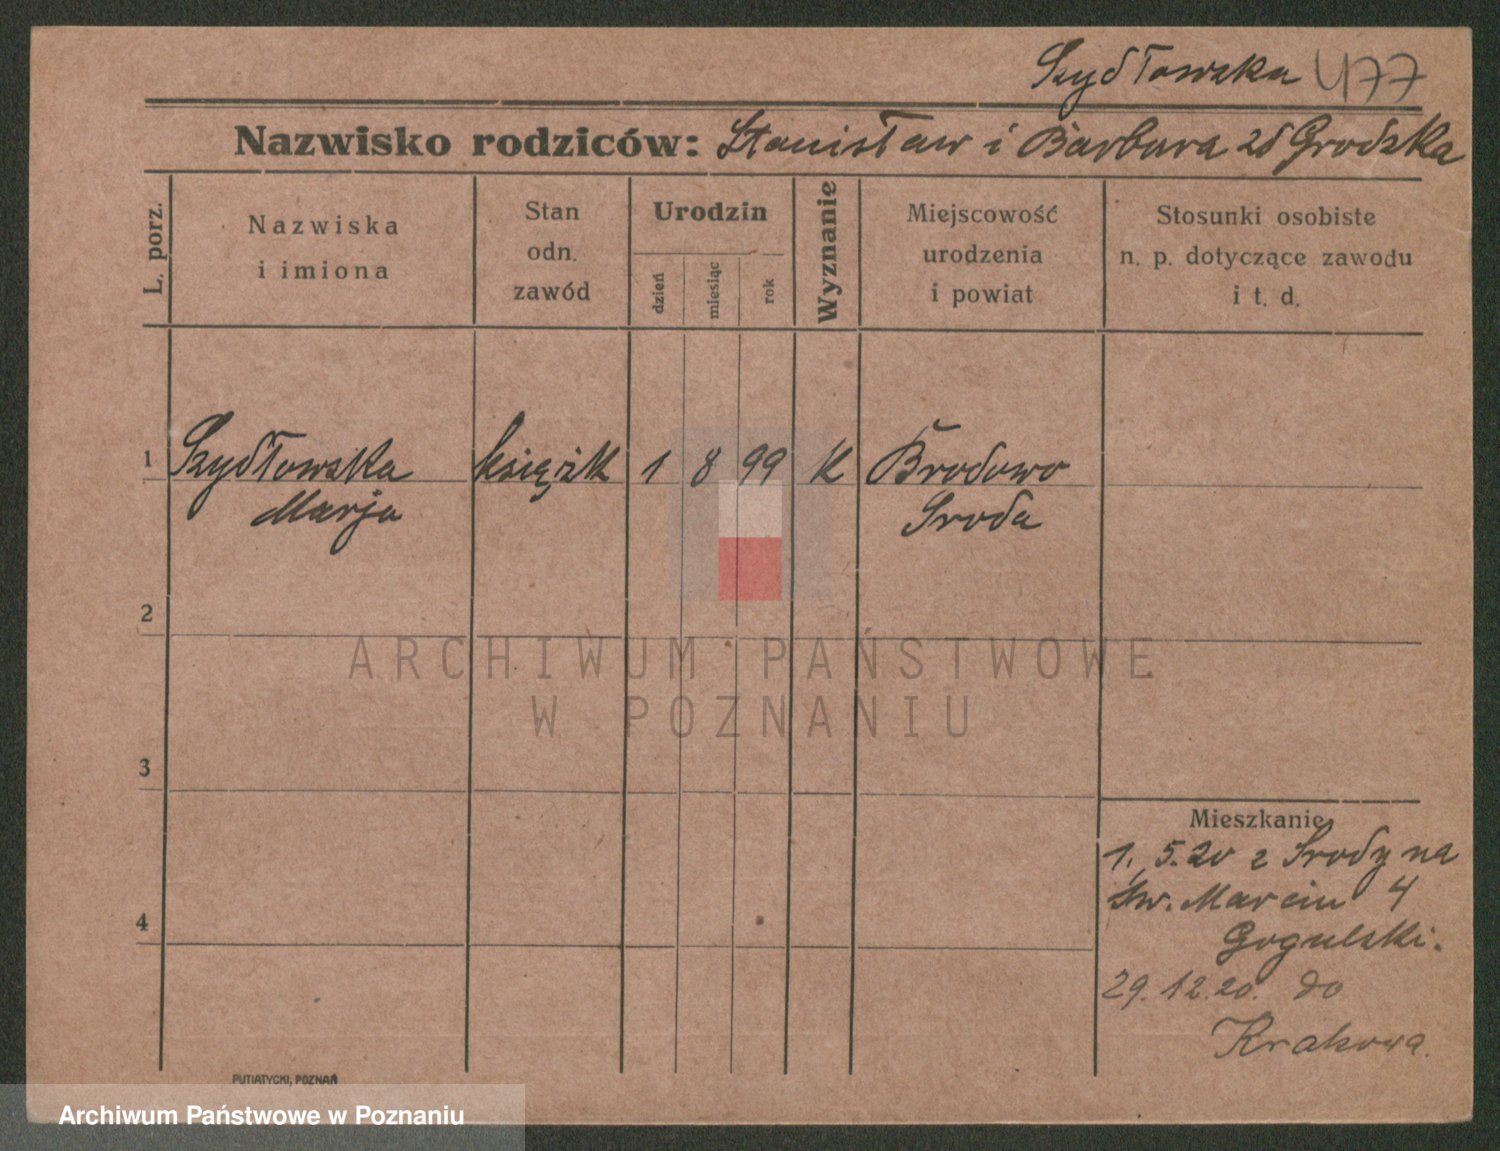 Szydłowska 477
Nazwisko rodziców: Stanisław i Barbara zd Grodzka
L. porz.
Nazwiska
i imiona
Stan
odn.
zawód
Urodzin
dzień
miesiąc
rok
Wyznanie
Miejscowość
urodzenia
i powiat
Stosunki osobiste
n. p. dotyczące zawodu
i t. d.
1 Szydłowska książk 1 8 99 K Brodowo
Marja Sroda
2
ARCHIWUM PAŃSTWOWE
W POZNANIU
3
Mieszkanie
1. 5.20 z Srody na
Św. Marcin 4
4
Gogulski.
29.12.20. do
Krakowa.
PUTIATYCKI, POZNAŃ
Archiwum Państwowe w Poznaniu